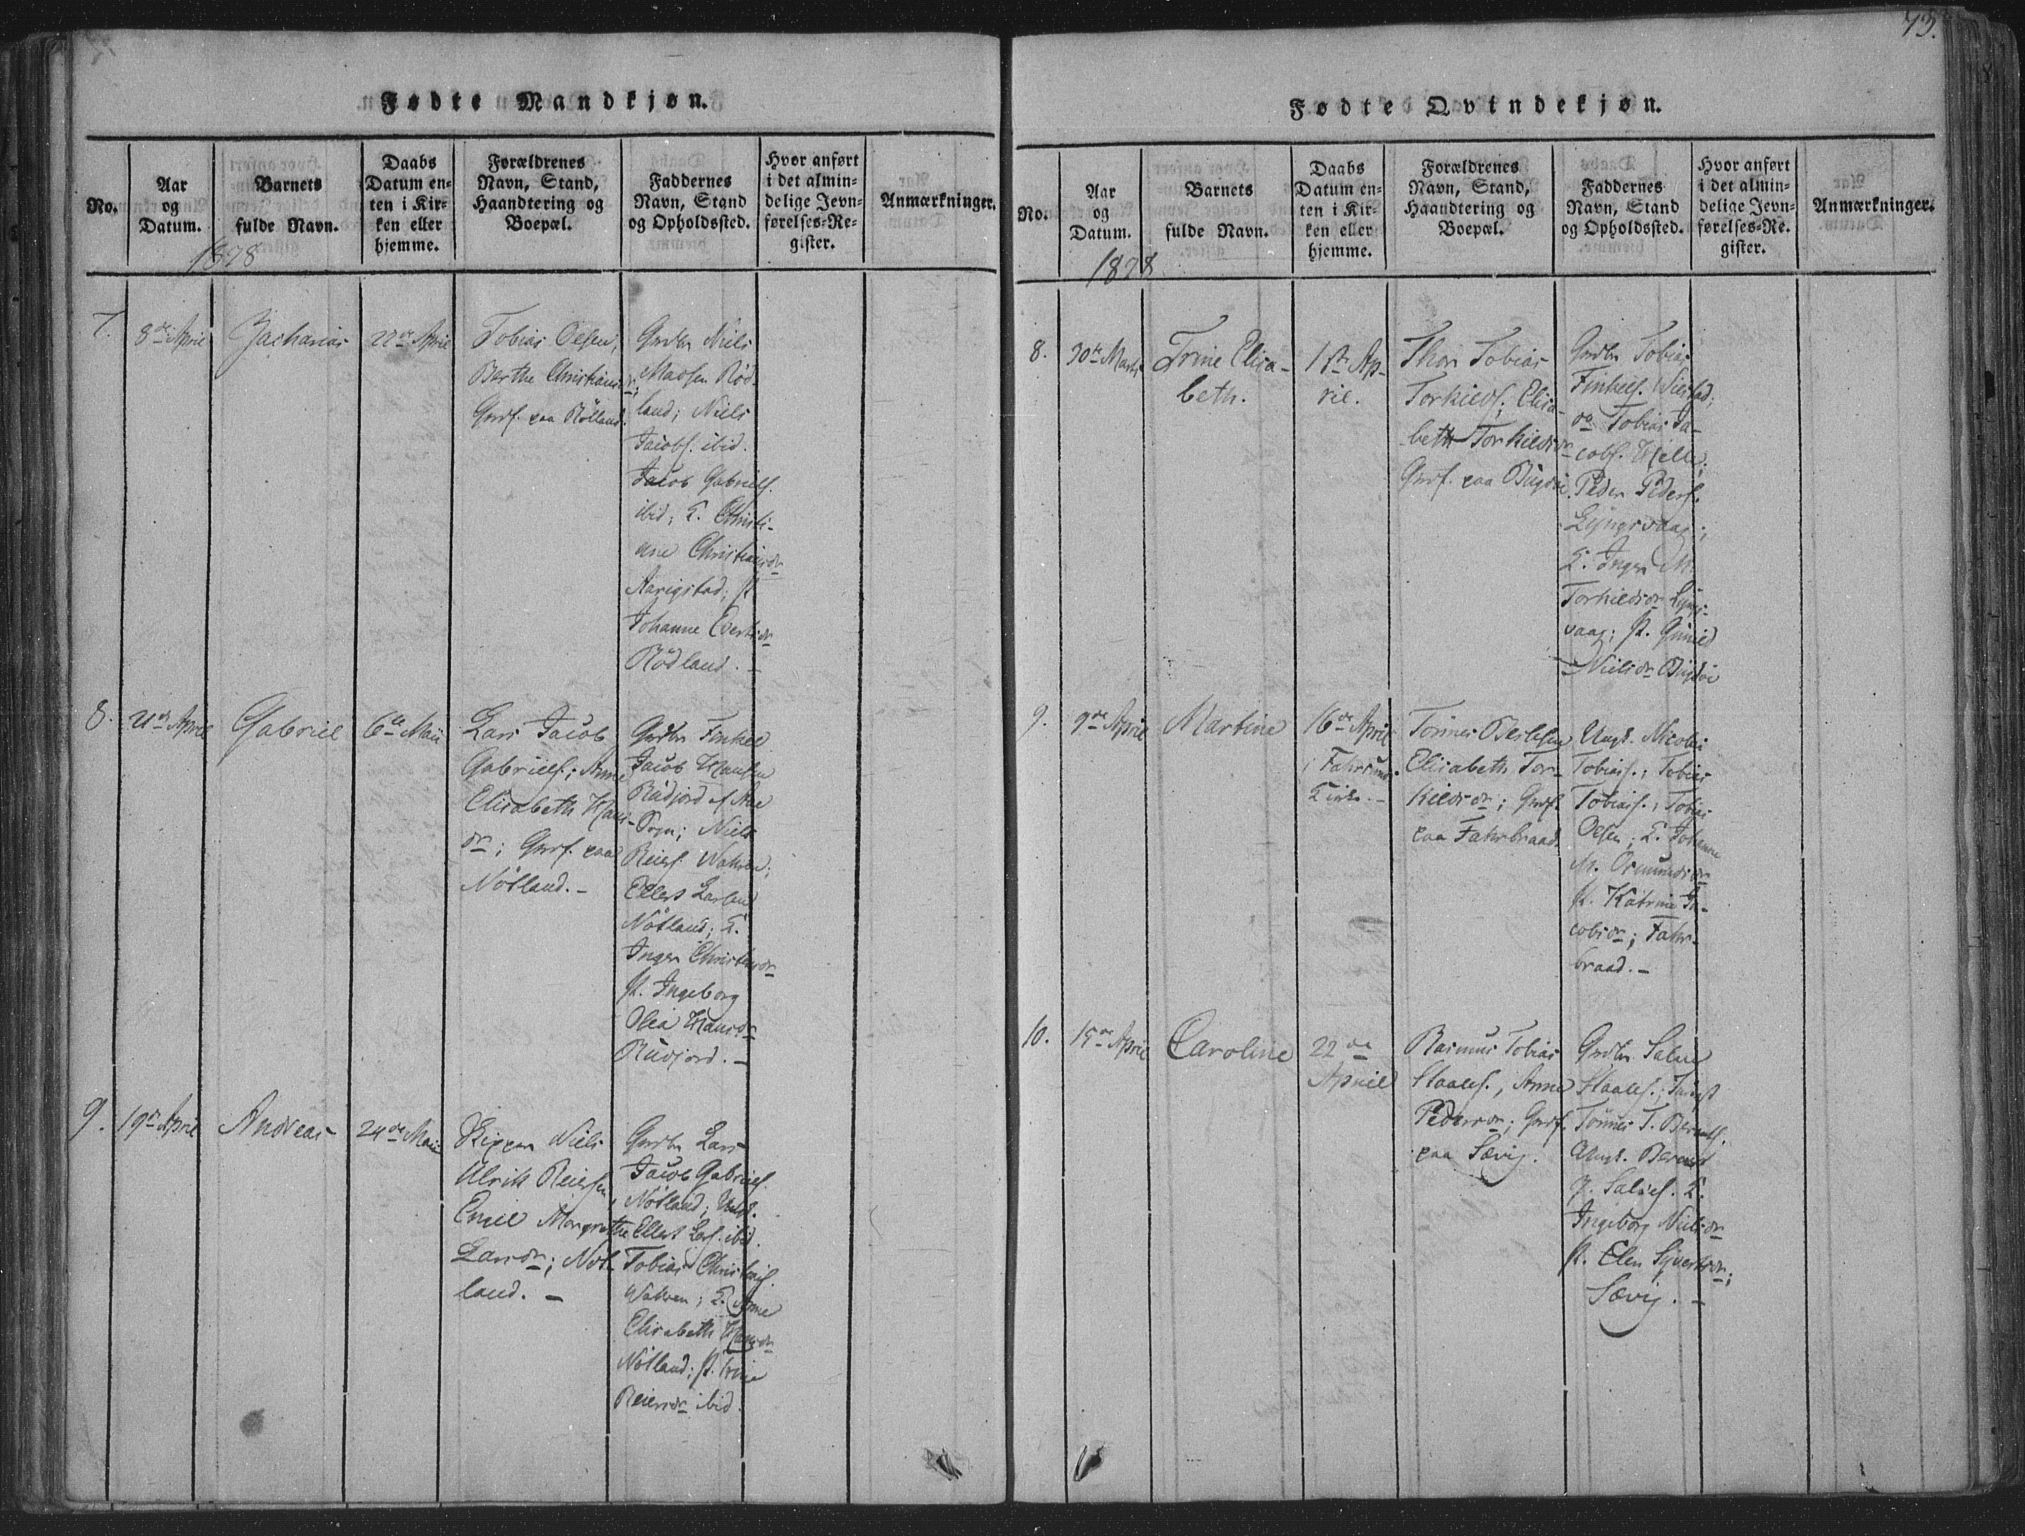 73.
Fødte Mandkjøn.
No.
Aar
og
Datum.
Barnets
fulde Navn.
Daabs
Datum en-
ten i Kir-
ken eller
hjemme.
Forældrenes
Navn, Stand,
Haandtering og
Boepæl.
Faddernes
Navn, Stand
og Opholdssted.
Hvor anført
i det almin-
delige Jevn-
førelses-Re-
gister.
Anmærkninger.
1828
7.
8de April
Zacharias
22de April
Tobias Olsen,
Berthe Christiansdr;
Gmdf. paa Rölland.
Gmdbr Niels
Madsen Röd-
land; Niels
Jacobs. ibid.
Jacob Gabriels.
ibid; K. Christi-
ane Christiansdr
Aarigstad; P.
Johanne Evertsdr
Rödland. -
8.
21de April
Gabriel
6te Maii
Lars Jacob
Gabriels.; Anne
Elisabeth Hans-
dr; Gmdf. paa
Nötland. -
Gmdbr Finkel
Jacob Hansen
Rudjord af Aae
Sogn; Niels
Reiers. Watren;
Ellert Larsen
Nötland; K.
Inger Christensdr
P. Ingeborg
Olea Hansdr
Rudjord. -
9.
19de April
Andreas
24de Maii
Skipper Niels
Ulrik Reiersen,
Emil Margrethe
Larsdr; Nöt-
land. -
Gmdbr Lars
Jacob Gabriels.
Nötland; Ungk.
Ellert Lars. ibid.
Tobias Christens.
Watren; K. Anne
Elisabeth Hansdr
Nötland; P. Trine
Reiersdr ibid.
Fødte Qvindekjøn.
No.
Aar
og
Datum.
Barnets
fulde Navn.
Daabs
Datum en-
ten i Kir-
ken eller
hjemme.
Forældrenes
Navn, Stand,
Haandtering og
Boepæl.
Faddernes
Navn, Stand
og Opholdssted.
Hvor anført
i det almin-
delige Jevn-
førelses-Re-
gister.
Anmærkninger.
1828
8.
30te Marts
Trine Elisa-
beth.
1ste Ap-
ril.
Thor Tobias
Torkilds; Elisa-
beth Torkildsdr
Gmdf. paa Bugdöe
Gmdbr Tobias
Finkels.
do Tobias Ja-
cobs. Helle;
Peder Peders.
Lyngsvaag;
K. Inger M.
Torkildsdr Lyngs-
vaag; P. Gunild
Nielsdr Bugdöe
9.
9de April
Martine
16de April
i Fahrsund
Kirke. -
Tönnes Bertelsen
Elisabeth Tor-
kildsdr; Gmdf.
paa Fahrbraad.
Ungk. Nicolai
Tobias.; Tobias
Tobias.; Tobias
Olsen; K. Johanne
M. Osmundsdr
P. Katrine Ja-
cobsdr; Fahr-
braad. -
10.
15de April
Caroline
22de
April
Rasmus Tobias
Staales., Anne
Pedersdr; Gmdf.
paa Sævig.
Gmdbr Salve
Staales.;
Tönnes T. Berents.
Ungk. Berent
Salves. K.
Ingeborg Nielsdr
P. Elen Syvertsdr;
Sævig. -